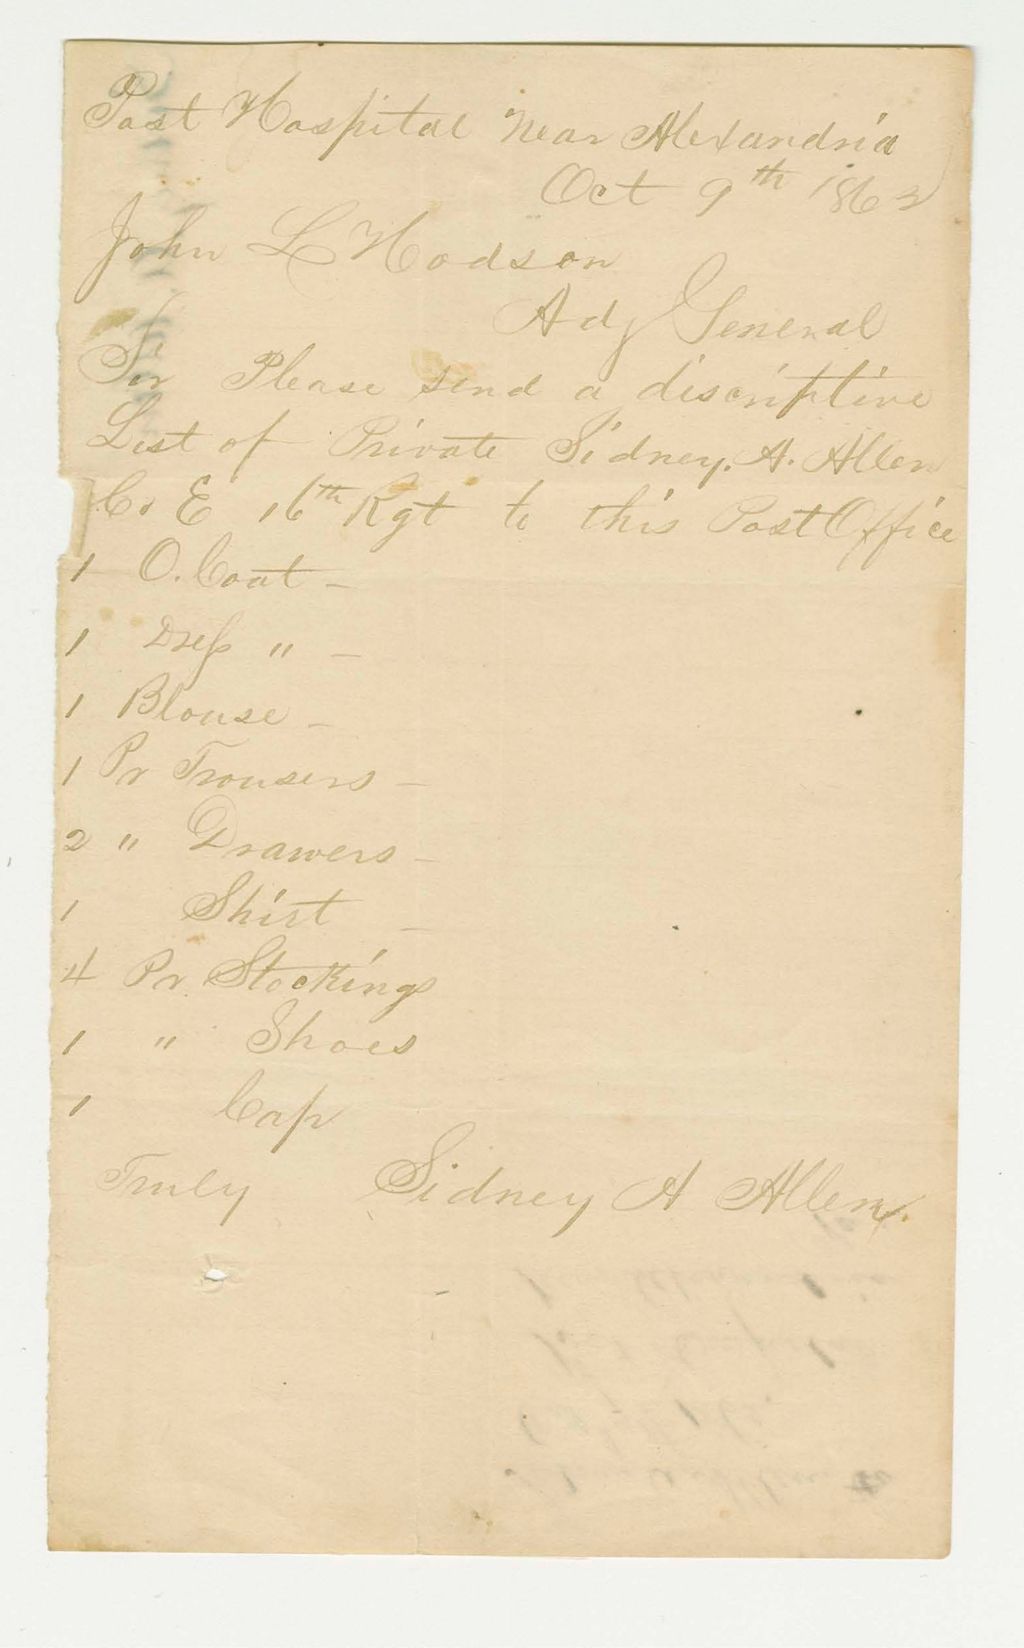 Post Hospital Near Alexandria
Oct 9th 1862
John L Hodson
Adj General
Sir Please send a discriptive
List of Private Sidney. A. Allen
Co E 16th Rgt to this Post Office
1 O. Coat -
1 Dress " -
1 Blouse -
1 Pr Trousers -
2 " Drawers -
1 Shirt -
4 Pr. Stockings
1 " Shoes
1 Cap
Truly Sidney A Allen.